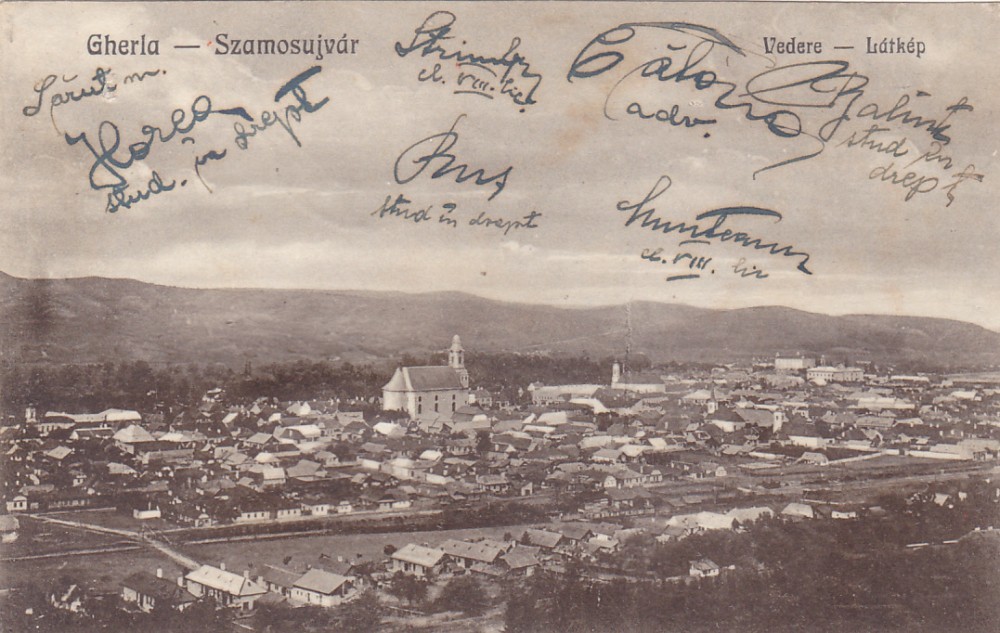 Gherla — Szamosujvár
Vedere — Látkép
Sărut m.
Horea
stud. în drept
cl. VIII. lic.
adv.
Balint
stud în
drept
Rus
stud în drept
Munteanu
cl. VIII. lic